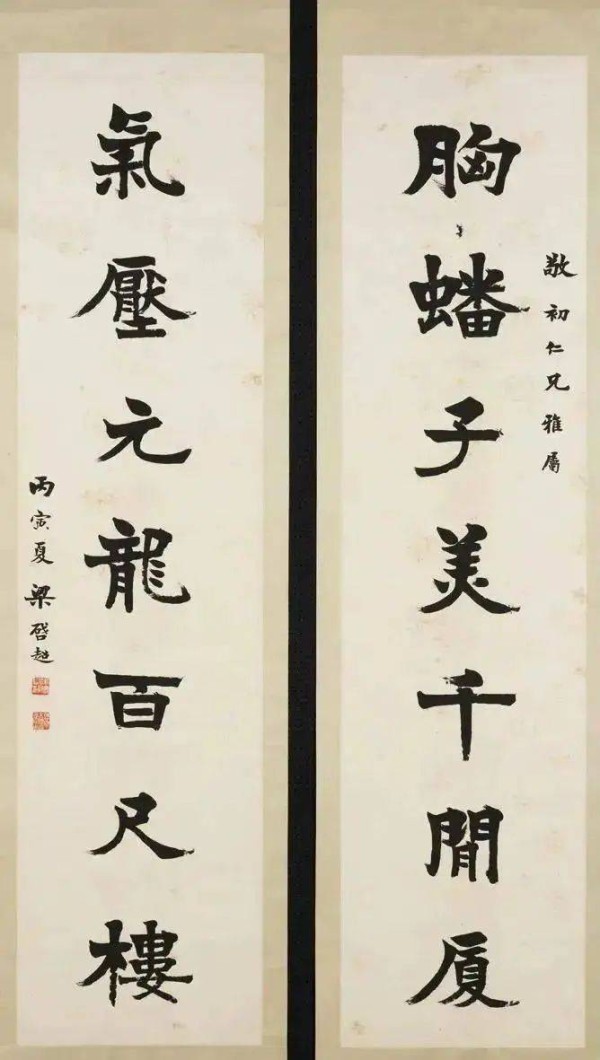 敬初仁兄雅屬
胸蟠子美千閒厦
氣壓元龍百尺樓
丙寅夏 梁啓超